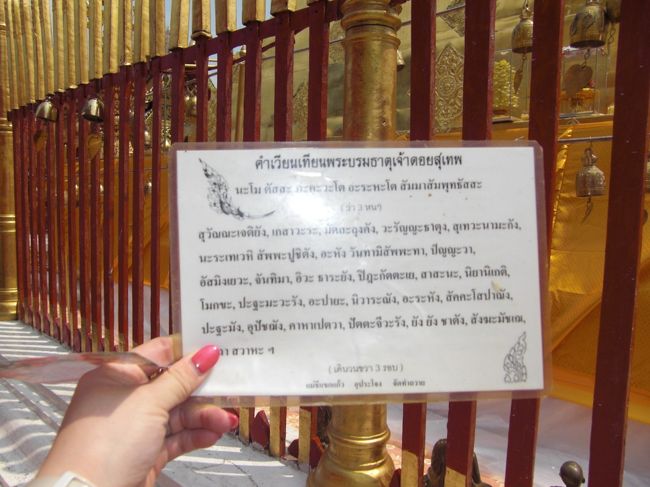 คำเวียนเทียนพระบรมธาตุเจ้าดอยสุเทพ
นะโม ตัสสะ ภะคะวะโต อะระหะโต สัมมาสัมพุทธัสสะ
( ว่า 3 หน )
สุวัณณะเจดิยัง, เกสาวะระ, มัตละลุงคัง, วะรัญญะธาตุง, สุเทวะนามะกัง,
นะระเทเวหิ สัพพะปูชิตัง, อะหัง วันทามิสัพพะทา, ปัญญะวา,
อัสมิงเยวะ, จันทิมา, อิวะ ธาระยัง, ปิฎะกัตตะเย, สาสะนะ, นิยานิเกติ,
โมกขะ, ปะฐะมะวะรัง, อะปายะ, นิวาระณัง, อะระหัง, สัคคะโสปาณัง,
ปะฐะมัง, อุปัชฌัง, คาหาเปตวา, ปัตตะจีวะรัง, ยัง ยัง ชาตัง, สังฆะมัชเฌ,
สวาหะ ฯ
( เดินวนขวา 3 รอบ )
แม่ชีแขกแก้ว อุประโจง จัดทำถวาย